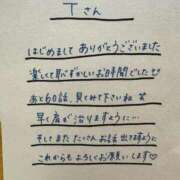 Tさん
はじめまして ありがとうございました
楽しくて恥ずかしいお時間でした♡
あと60話、見てみて下さいね 笑
早く肩が治りますように…
そしてまた たくさんお話 出来ますように
これからも よろしくお願いします♡